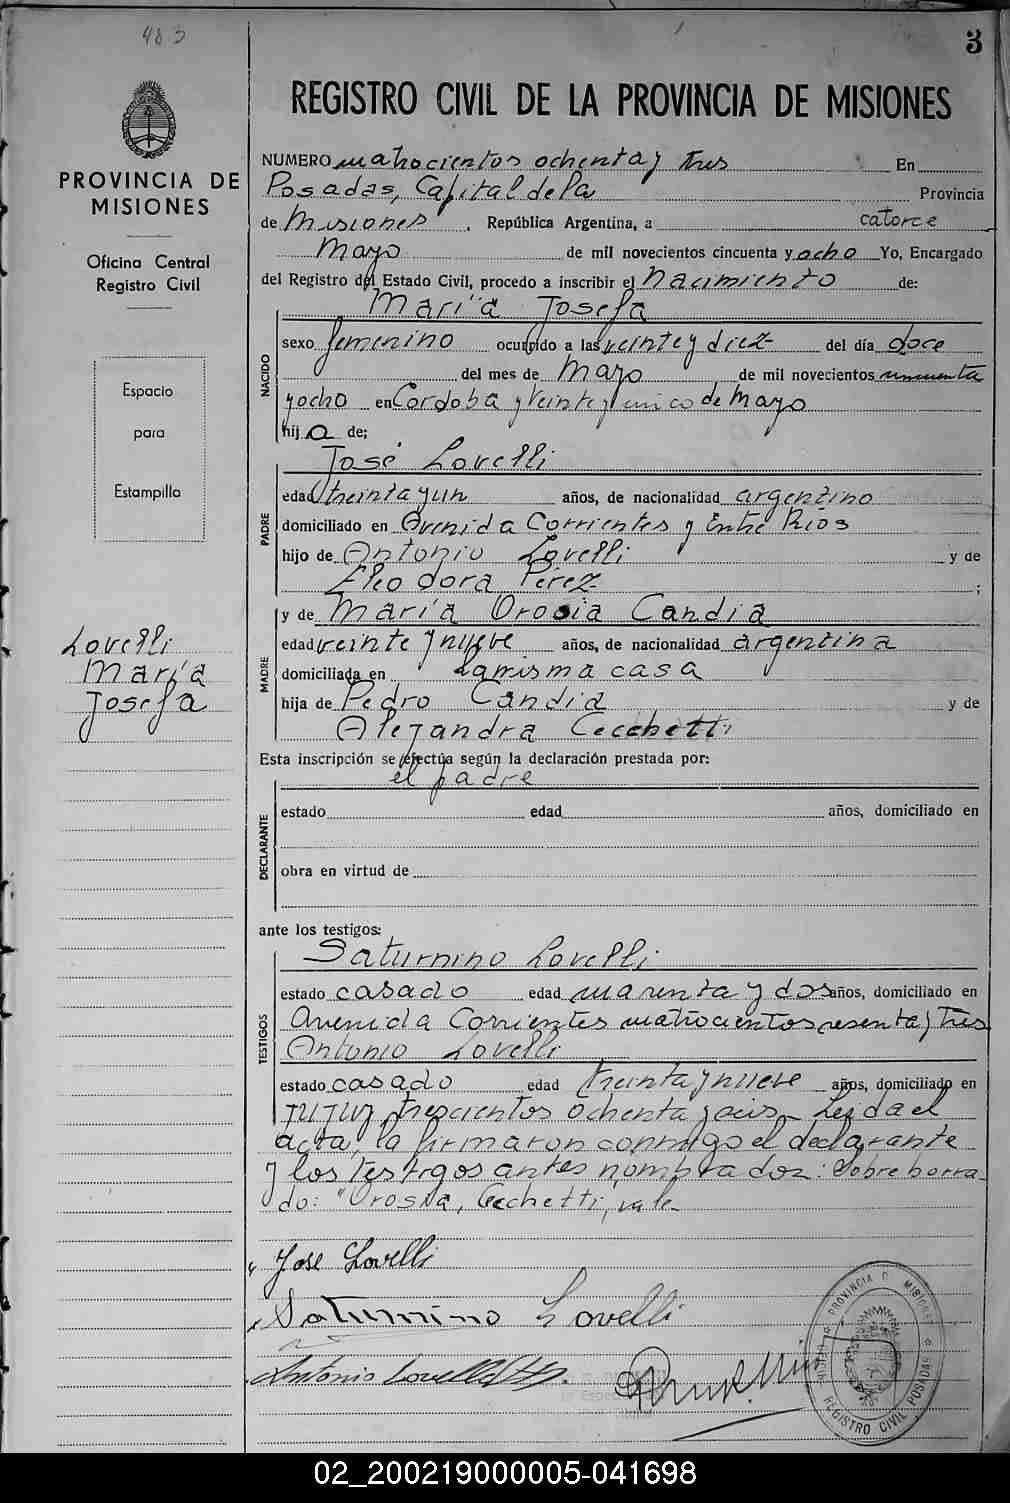 483
3
REGISTRO CIVIL DE LA PROVINCIA DE MISIONES
PROVINCIA DE
MISIONES
Oficina Central
Registro Civil
Espacio
para
Estampilla
Lovelli
María
Josefa
NUMERO cuatrocientos ochenta y tres En
Posadas, Capital de la Provincia
de Misiones, República Argentina, a catorce
Mayo de mil novecientos cincuenta y ocho Yo, Encargado
del Registro del Estado Civil, procedo a inscribir el nacimiento de:
María Josefa
NACIDO
sexo femenino ocurrido a las veinte y diez del día doce
del mes de Mayo de mil novecientos cincuenta
y ocho en Cordoba y Veinte y cinco de Mayo
hij a de;
José Lovelli
PADRE
edad treinta y un años, de nacionalidad argentino
domiciliado en Avenida Corrientes y Entre Ríos
hijo de Antonio Lovelli y de
Eleodora Pérez ;
y de María Orosia Candia
MADRE
edad veinte y nueve años, de nacionalidad argentina
domiciliada en la misma casa
hija de Pedro Candia y de
Alejandra Cecchetti
Esta inscripción se efectúa según la declaración prestada por:
el padre
DECLARANTE
estado edad años, domiciliado en
obra en virtud de
ante los testigos:
Saturnino Lovelli
TESTIGOS
estado casado edad cuarenta y dos años, domiciliado en
Avenida Corrientes cuatrocientos sesenta y tres
Antonio Lovelli
estado casado edad treinta y nueve años, domiciliado en
Jujuy trescientos ochenta y seis Leída el
acta, la firmaron conmigo el declarante
y los testigos antes nombrados: Sobre borra-
do: "Orosia, Cecchetti, vale
Jose Lovelli
Saturnino Lovelli
Antonio Lovelli
PROVINCIA D MISIONES
REGISTRO CIVIL POSADAS
02_200219000005-041698